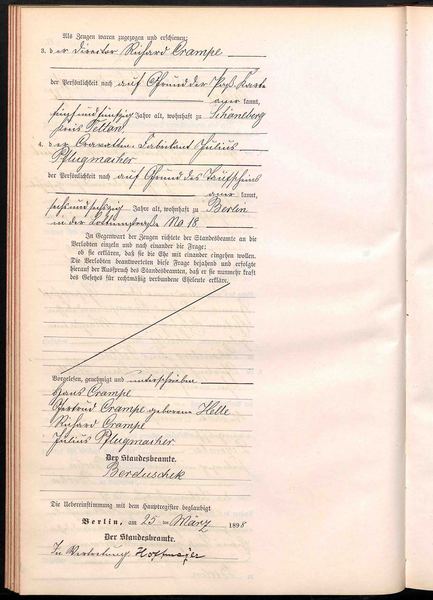 Als Zeugen waren zugezogen und erschienen:
3. der Director Richard Crampe
der Persönlichkeit nach auf Grund der Paß-Karte
anerkannt,
fünfundfünfzig Jahre alt, wohnhaft zu Schöneberg
Kreis Teltow,
4. der Cravatten-Fabrikant Julius
Pflugmacher
der Persönlichkeit nach auf Grund des Taufscheins
anerkannt,
Jahre alt, wohnhaft zu Berlin
in der Lothringerstraße No 18.
In Gegenwart der Zeugen richtete der Standesbeamte an die
Verlobten einzeln und nach einander die Frage:
ob sie erklären, daß sie die Ehe mit einander eingehen wollen.
Die Verlobten beantworteten diese Frage bejahend und erfolgte
hierauf der Ausspruch des Standesbeamten, daß er sie nunmehr kraft
des Gesetzes für rechtmäßig verbundene Eheleute erkläre.
Vorgelesen, genehmigt und unterschrieben
Hans Crampe
Gertrud Crampe geborene Helle
Richard Crampe
Julius Pflugmacher
Der Standesbeamte.
Berduschek
Die Uebereinstimmung mit dem Hauptregister beglaubigt
Berlin, am 25 ten März 1898
Der Standesbeamte.
In Vertretung Hoffmejer